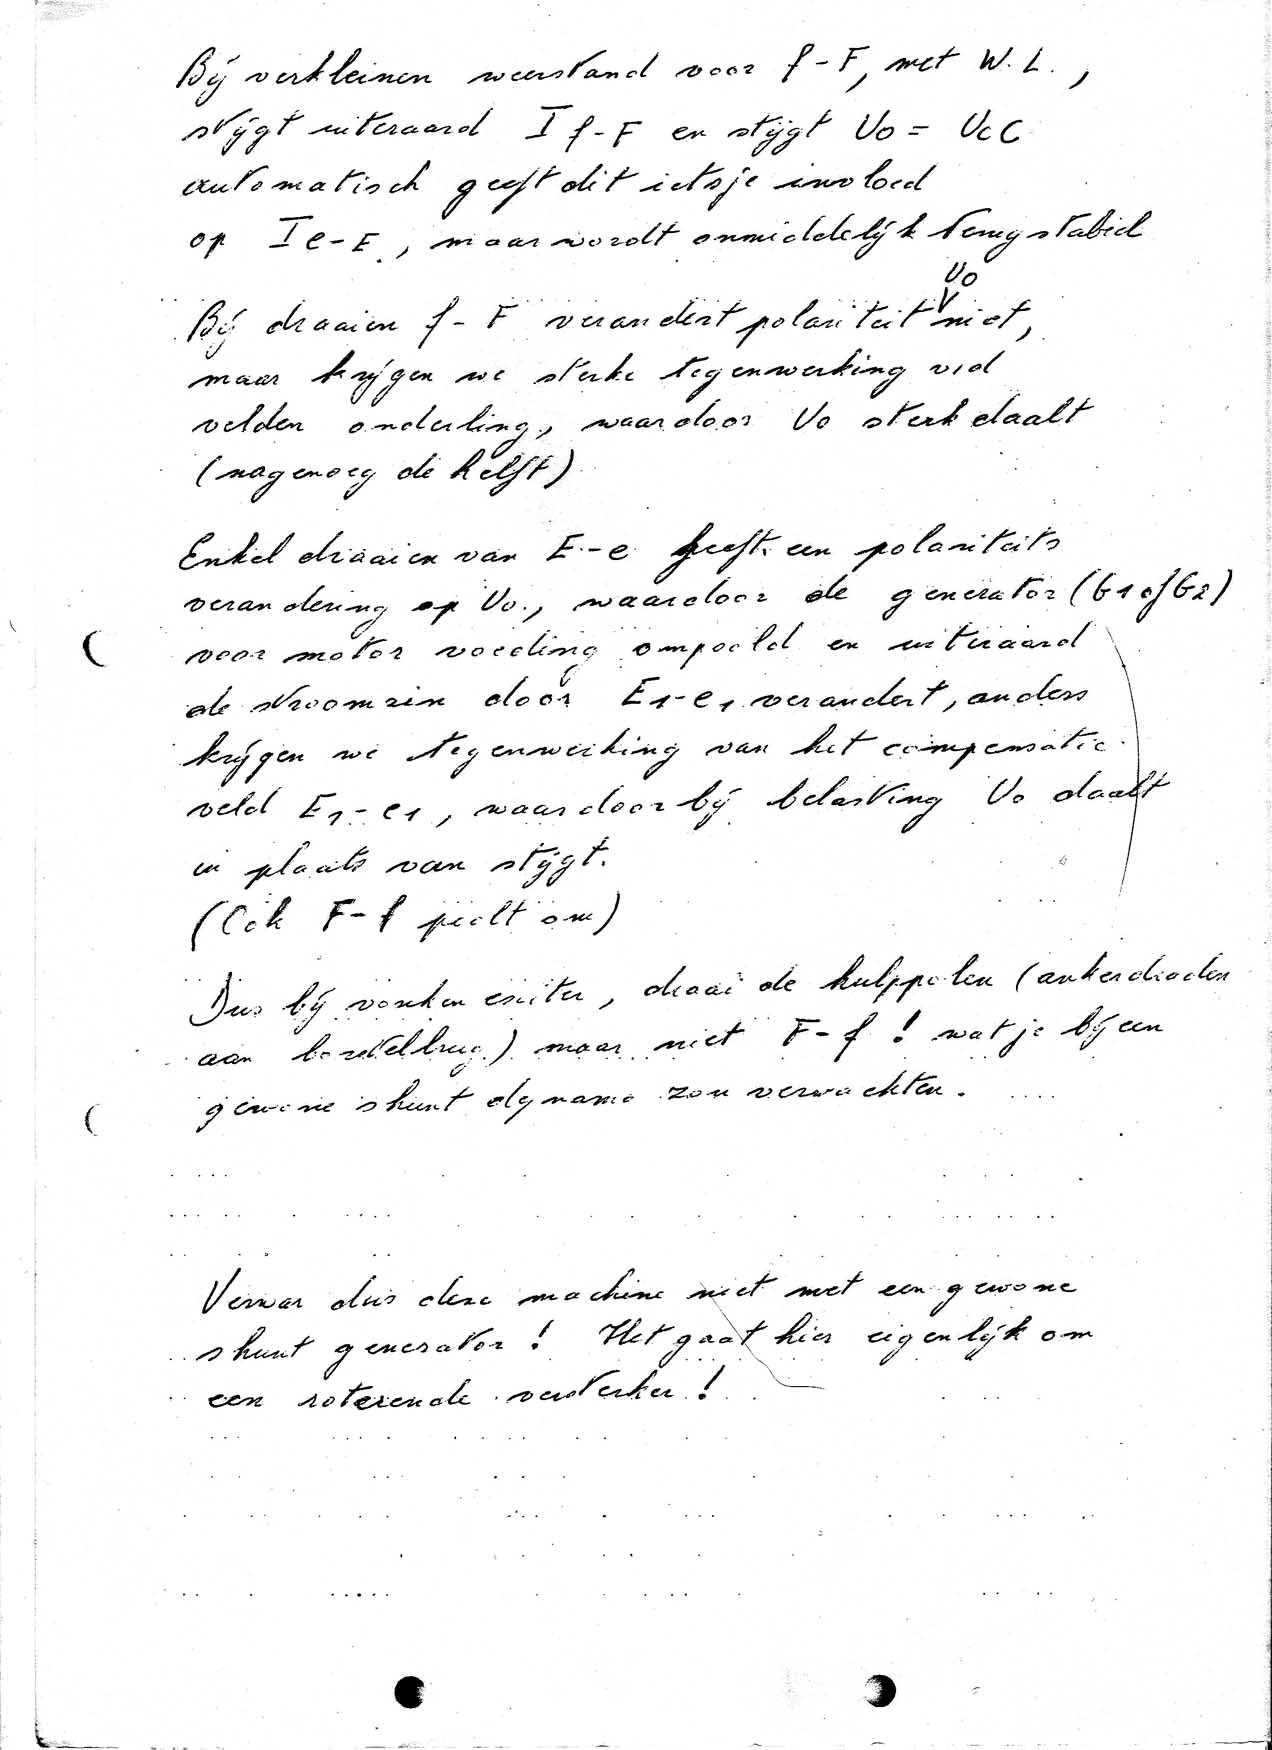 Bij verkleinen weerstand voor f-F, met W.L.,
stijgt uiteraard I f-F en stijgt Uo = Ucc
automatisch geeft dit ietsje invloed
op I e-E, maar wordt onmiddelijk terug stabiel
Uo
Bij draaien f-F verandert polariteit V niet,
maar krijgen we sterke tegenwerking v/d
velden onderling, waardoor Uo sterk daalt
(nagenoeg de helft)
Enkel draaien van E-e geeft een polariteits
verandering op Uo., waardoor de generator (G1 of G2)
voor motor voeding ompoold en uiteraard
de stroomzin door E1-e1 verandert, anders
krijgen we tegenwerking van het compensatie-
veld E1-e1, waardoor bij belasting Uo daalt
in plaats van stijgt.
(Ook F-f poolt om)
Dus bij vonken exiter, draai de hulppolen (ankerdraden
aan borstelbrug) maar niet F-f ! wat je bij een
gewone shunt dynamo zou verwachten.
Verwar dus deze machine niet met een gewone
shunt generator ! Het gaat hier eigenlijk om
een roterende versterker !